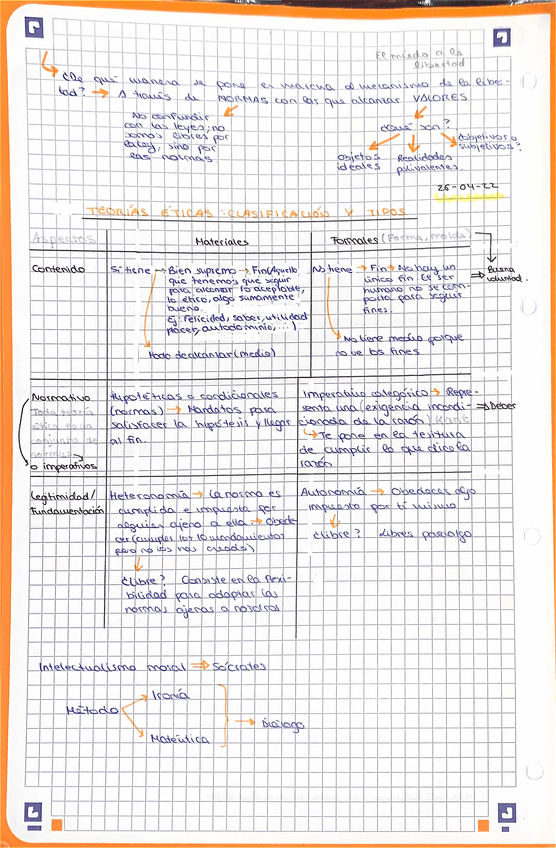 El miedo a la
libertad
¿De qué manera se pone en marcha el mecanismo de la liber-
tad? → A través de NORMAS con las que alcanzar VALORES
No confundir
con las leyes, no
somos libres por
la ley, sino por
las normas
¿Qué son?
Objetos
ideales
Realidades
polivalentes.
¿Objetivos o
subjetivos?
26-04-22
TEORÍAS ÉTICAS: CLASIFICACIÓN Y TIPOS
Aspectos
Materiales
Formales (Forma, molde)
Contenido
Si tiene → Bien supremo → Fin (Aquello
que tenemos que seguir
para alcanzar lo aceptable,
lo ético, algo sumamente
bueno.
Ej: Felicidad, saber, utilidad
placer, autodominio,...)
Modo de alcanzar (medio)
No tiene → Fin → No hay un
único fin. El ser
humano no se com-
porta para seguir
fines.
No tiene medio porque
no ve los fines
⇒ Buena
voluntad.
Normativo
Toda teoría
ética es un
conjunto de
normas
o imperativos
Hipotéticas o condicionales
(normas) → Mandatos para
satisfacer la hipótesis y llegar
al fin.
Imperativo categórico → Repre-
senta una (exigencia incondi-
cionada de la razón) Kant
↳ Te pone en la tesitura
de cumplir lo que dice la
razón
⇒ Deber
Legitimidad/
Fundamentación
Heteronomía → La norma es
cumplida e impuesta por
alguien ajeno a ella → Obede-
cer (cumples los 10 mandamientos
pero no los has creado)
¿Libre? Consiste en la flexi-
bilidad para adaptar las
normas ajenas a nosotros
Autonomía → Obedecer algo
impuesto por ti mismo
¿Libre? Libres para algo
Intelectualismo moral ⇒ Sócrates
Método
Ironía
Mateútica
→ Diálogo